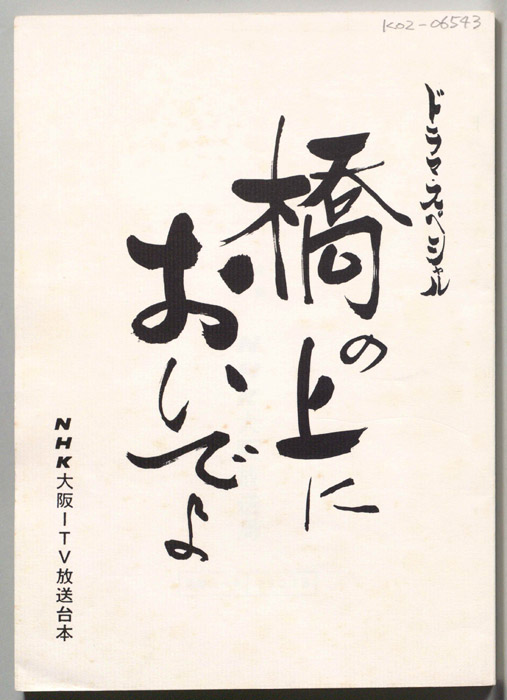 K02-06543
ドラマ・スペシャル
橋の上に
おいでよ
NHK大阪ーTV放送台本